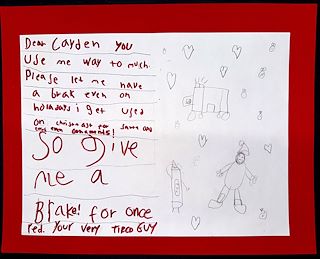 Dear Cayden you
Use me way to much.
Please let me have
a brak even on
holadays i get used
on christmast for santa and
and even ornaments!
So give
me a
Brake! for once
red. Your very TIRED GUY